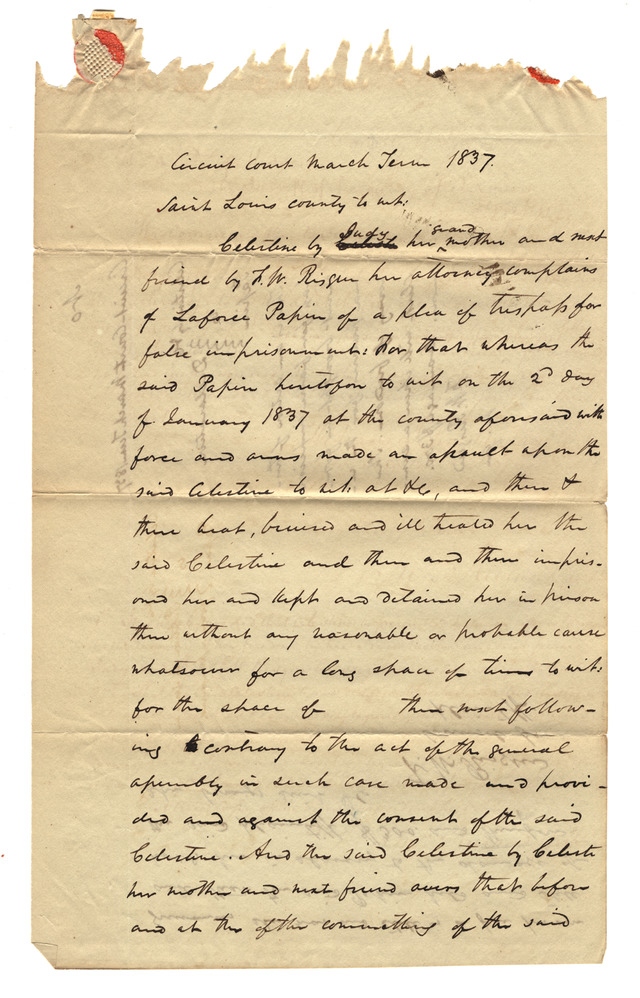 Circuit Court March Term 1837.
Saint Louis county to wit:
Celestine by Judy her grand mother and next
friend by F. W. Risque her attorney complains
of Laforce Papin of a plea of trespass for
false imprisonment: For that whereas the
said Papin heretofore to wit on the 2d day
of January 1837 at the county aforesaid with
force and arms made an assault upon the
said Celestine to wit at &c, and then &
there beat, bruised and ill treated her the
said Celestine and then and there impris-
oned her and kept and detained her in prison
there without any reasonable or probable cause
whatsoever for a long space of time to wit:
for the space of then next follow-
ing contrary to the act of the general
assembly in such case made and provi-
ded and against the consent of the said
Celestine. And the said Celestine by Celeste
her mother and next friend avers that before
and at the of the committing of the said